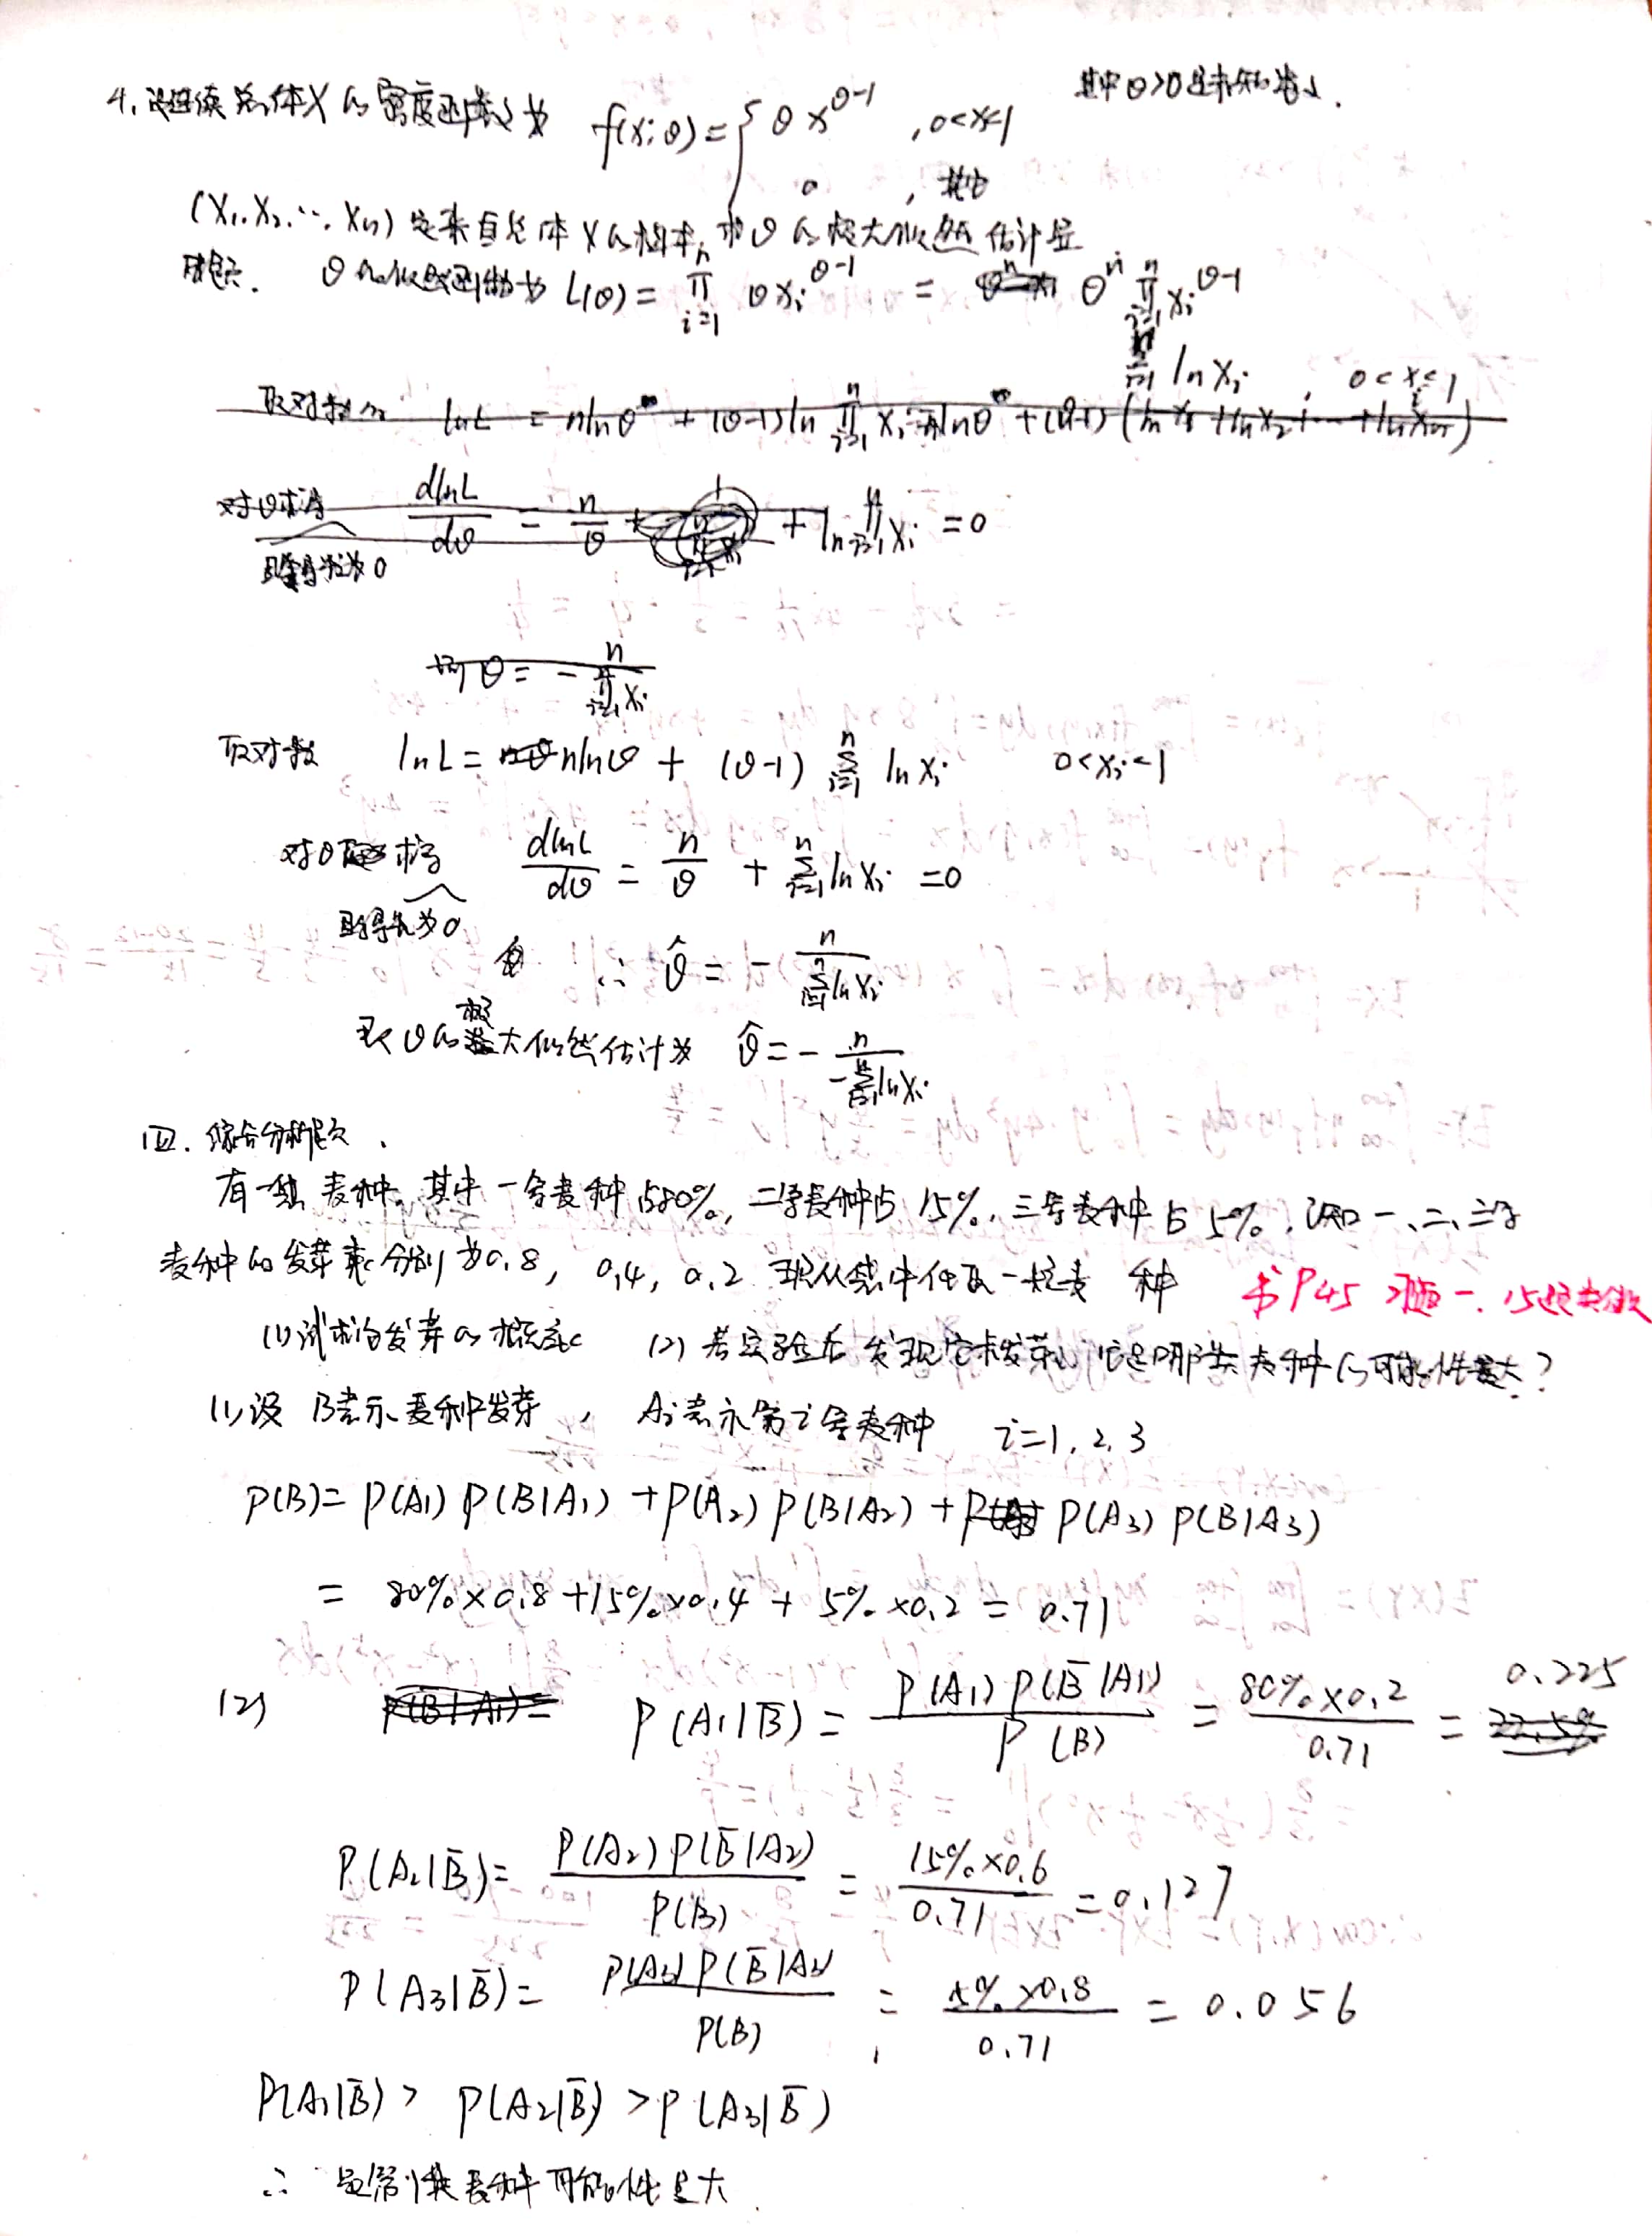 4. 设连续总体X的密度函数为 f(x;θ)={ θx^{θ-1} , 0<x<1 其中θ>0是未知参数.
0 , 其它
(X₁, X₂, ⋯, Xn) 是来自总体X的样本, 求θ的极大似然估计量
解: θ的似然函数为 L(θ) = ∏_{i=1}^{n} θx_i^{θ-1} = θ^n ∏_{i=1}^{n} x_i^{θ-1}
∑_{i=1}^{n} ln x_i , 0<x_i<1
取对数 lnL = nlnθ + (θ-1)ln ∏_{i=1}^{n} x_i = nlnθ + (θ-1)(lnx₁+lnx₂+⋯+lnxn)
对θ求导 dlnL/dθ = n/θ + ln∏_{i=1}^{n} x_i = 0
且令导数为0
θ = - n/∏_{i=1}^{n} x_i
取对数 lnL = nlnθ + (θ-1) ∑_{i=1}^{n} ln x_i 0<x_i<1
对θ求导 dlnL/dθ = n/θ + ∑_{i=1}^{n} ln x_i = 0
且导数为0
∴ θ̂ = - n/∑_{i=1}^{n} ln x_i
θ的极大似然估计为 θ̂ = - n/-∑_{i=1}^{n} ln x_i
四. 综合分析题.
有一批麦种, 其中一等麦种占80%, 二等麦种占15%, 三等麦种占5%, 已知一、二、三等
麦种的发芽率分别为0.8, 0.4, 0.2 现从其中任取一粒麦种 书P45 习题一. 15题类似
(1) 试求它发芽的概率 (2) 若实验后发现它未发芽, 它是哪类麦种的可能性最大?
(1) 设 B表示麦种发芽, A_i表示第i等麦种 i=1, 2, 3
P(B) = P(A₁) P(B|A₁) + P(A₂) P(B|A₂) + P(A₃) P(B|A₃)
= 80%×0.8 + 15%×0.4 + 5%×0.2 = 0.71
(2) P(B|A₁)= P(A₁|B̄) = P(A₁) P(B̄|A₁)/P(B) = 80%×0.2/0.71 = 0.225
P(A₂|B̄) = P(A₂) P(B̄|A₂)/P(B) = 15%×0.6/0.71 = 0.127
P(A₃|B̄) = P(A₃) P(B̄|A₃)/P(B) = 5%×0.8/0.71 = 0.056
P(A₁|B̄) > P(A₂|B̄) > P(A₃|B̄)
∴ 是第1类麦种可能性最大